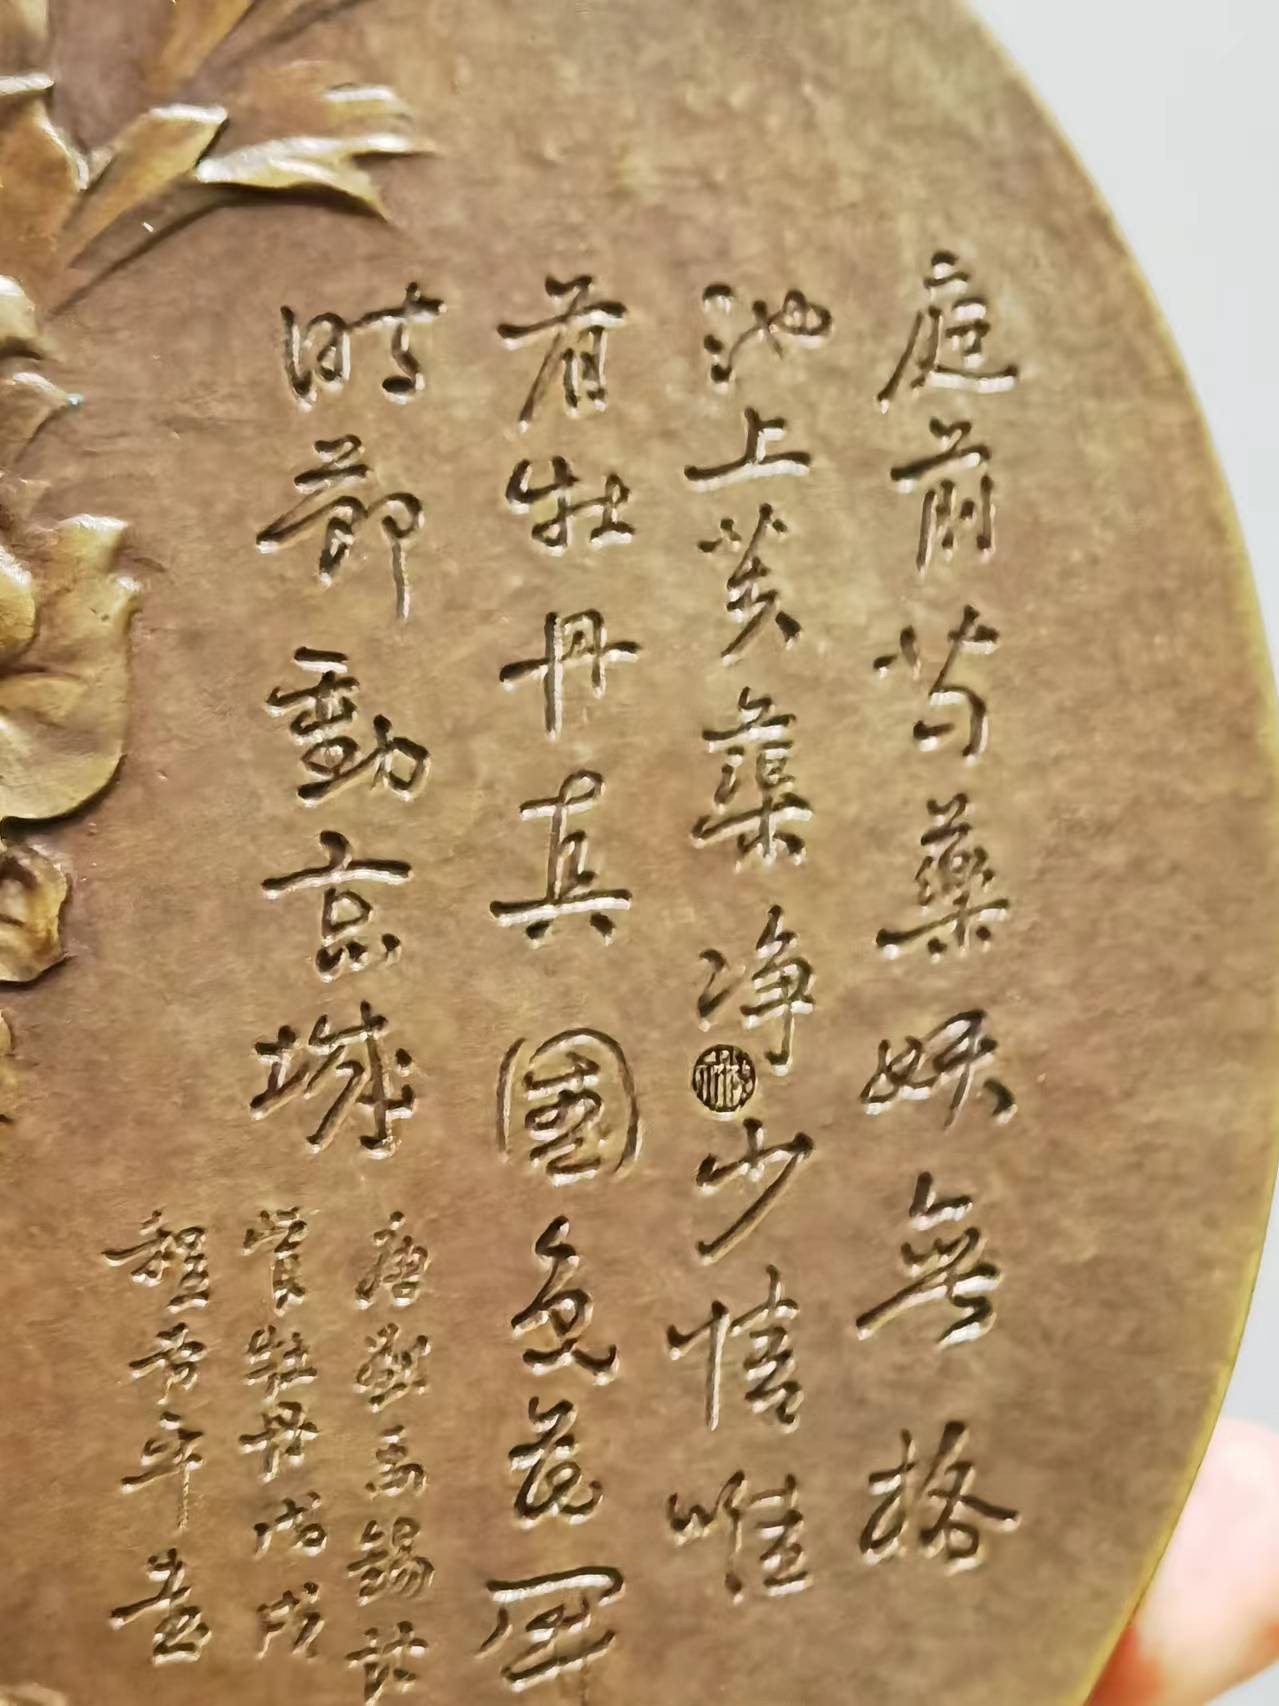 庭前芍藥妖無格
池上芙蕖净少情唯
有牡丹真國色花開
時節動京城
唐劉禹錫詩
賞牡丹戊戌
程